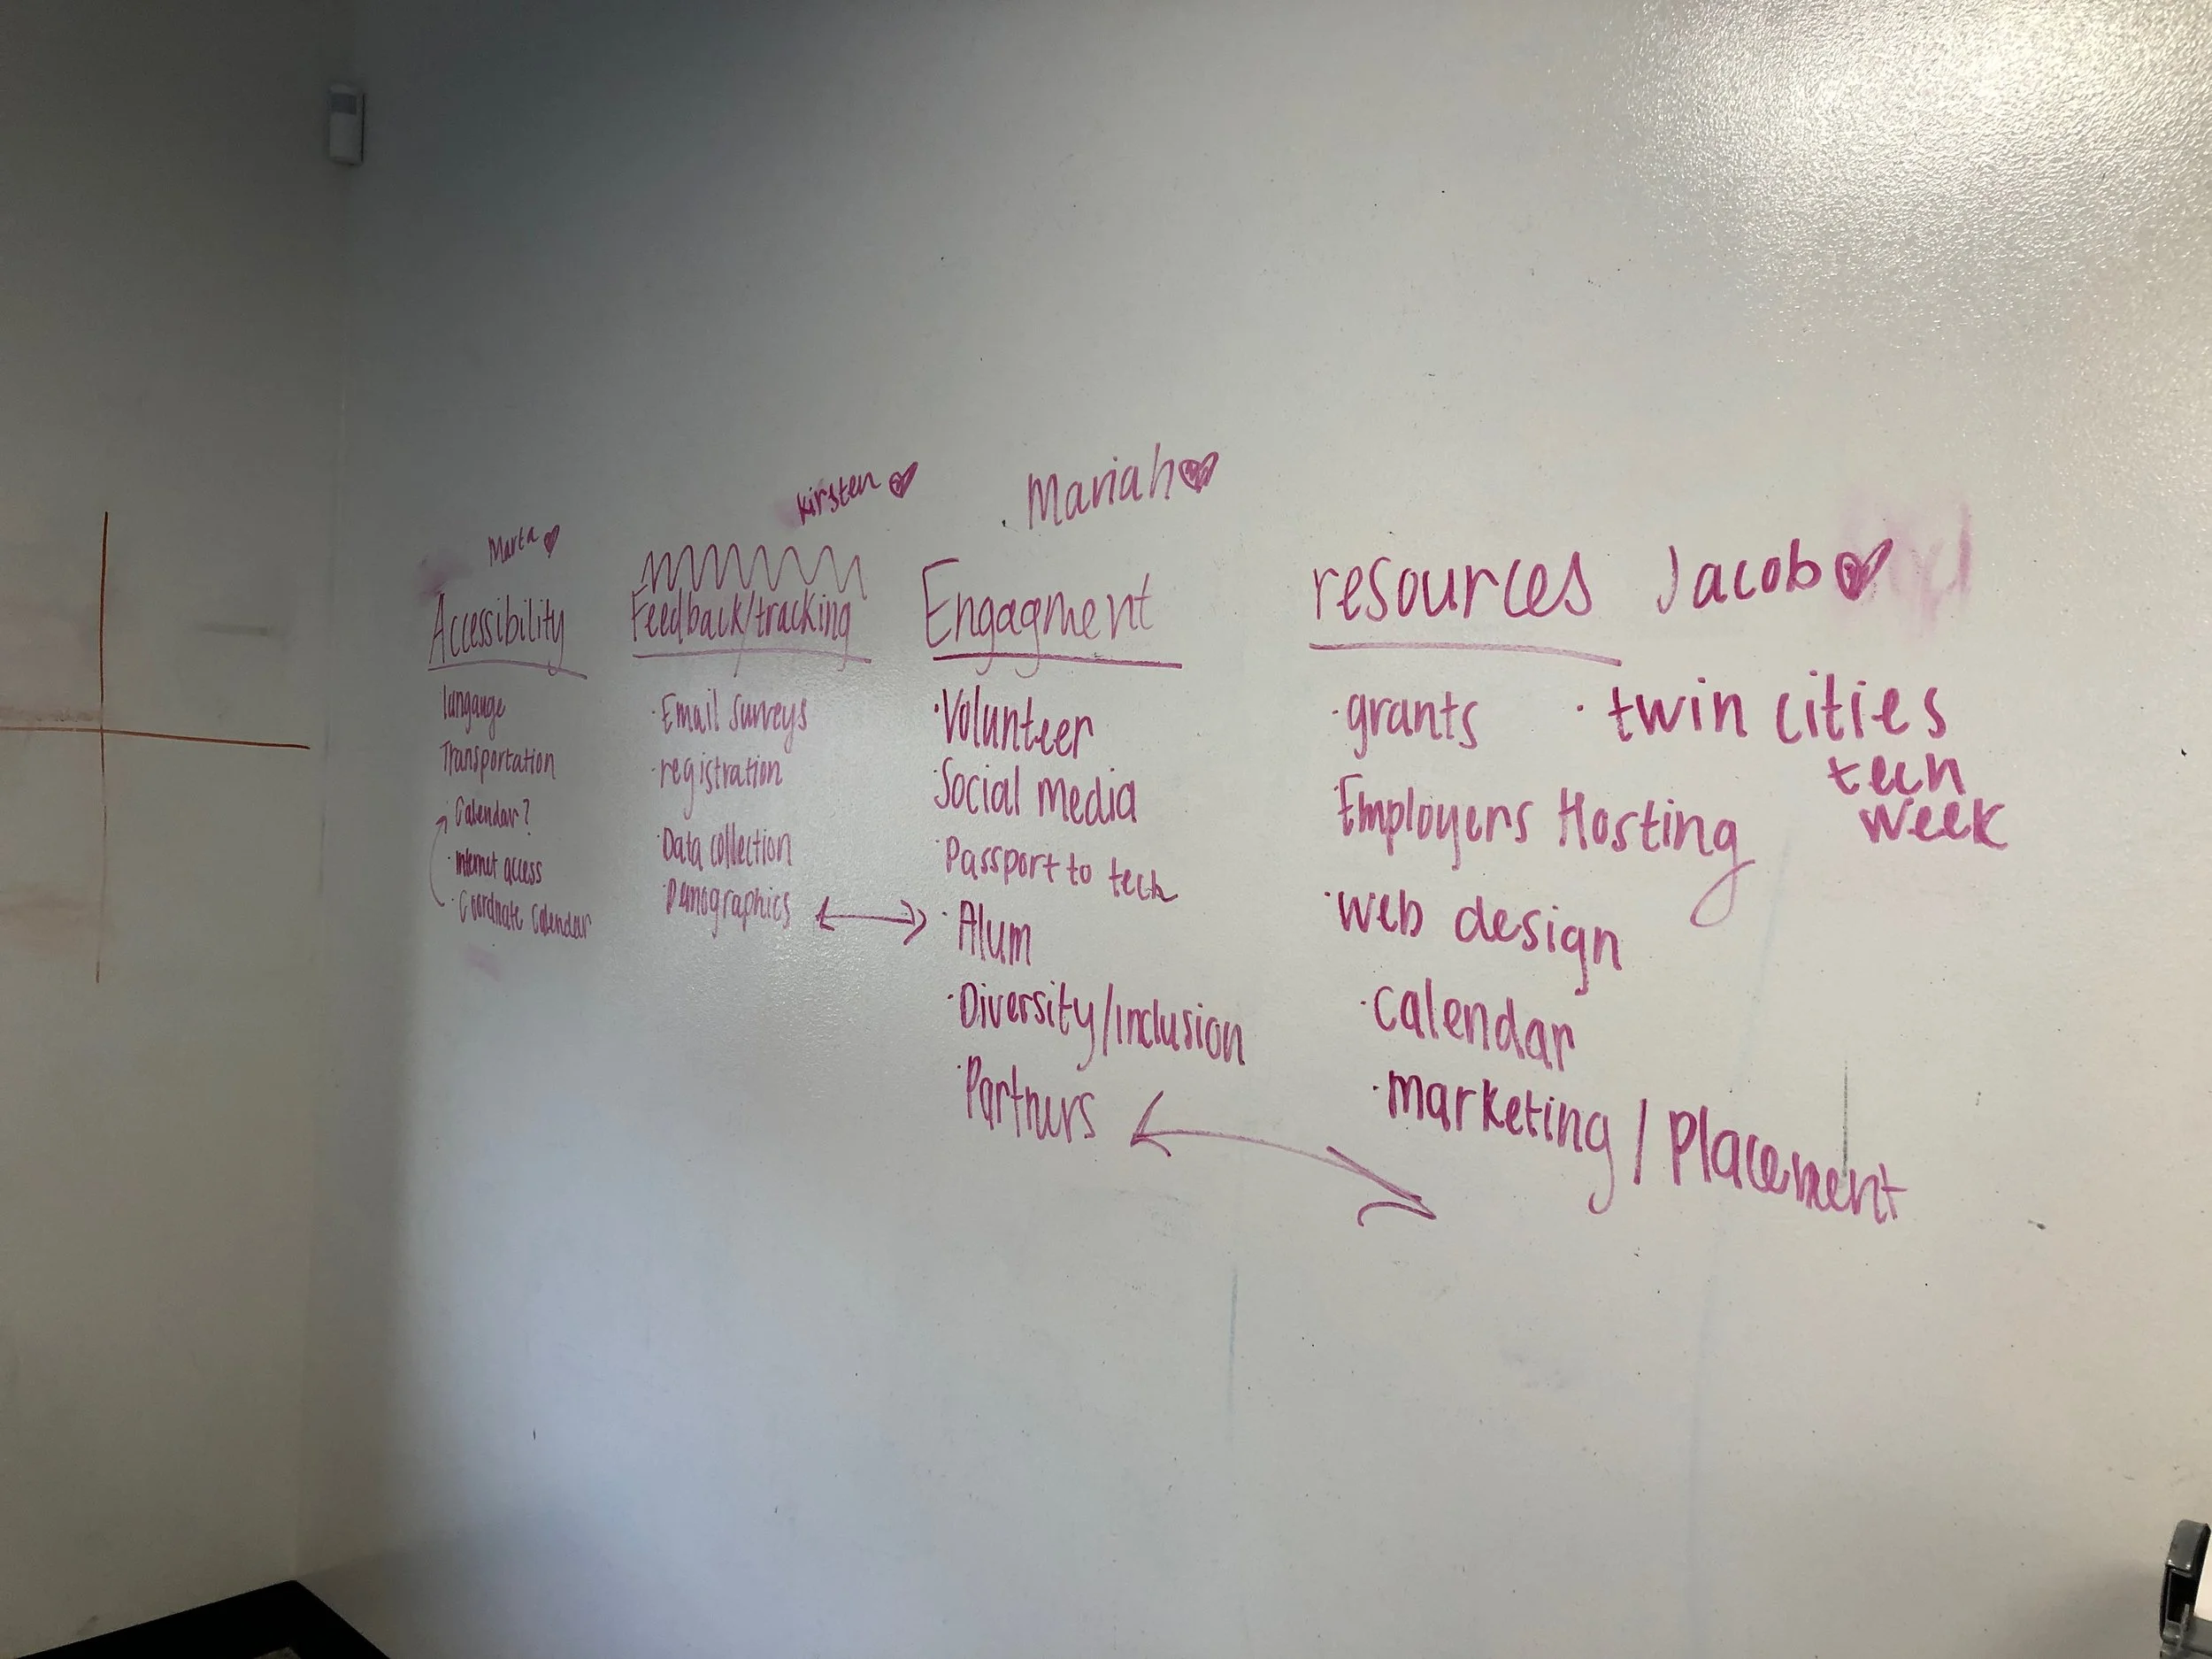 Marta
Accessibility
langauge
Transportation
· Calendar?
· Internet access
· Coordnate calendar
Kirsten
Feedback/tracking
· Email surveys
· registration
· Data collection
· Demographics
Mariah
Engagment
· Volunteer
· Social media
· Passport to tech
· Alum
· Diversity/inclusion
· Partners
resources Jacob
· grants
· Employers Hosting
· web design
· calendar
· marketing / Placement
· twin cities
tech
week